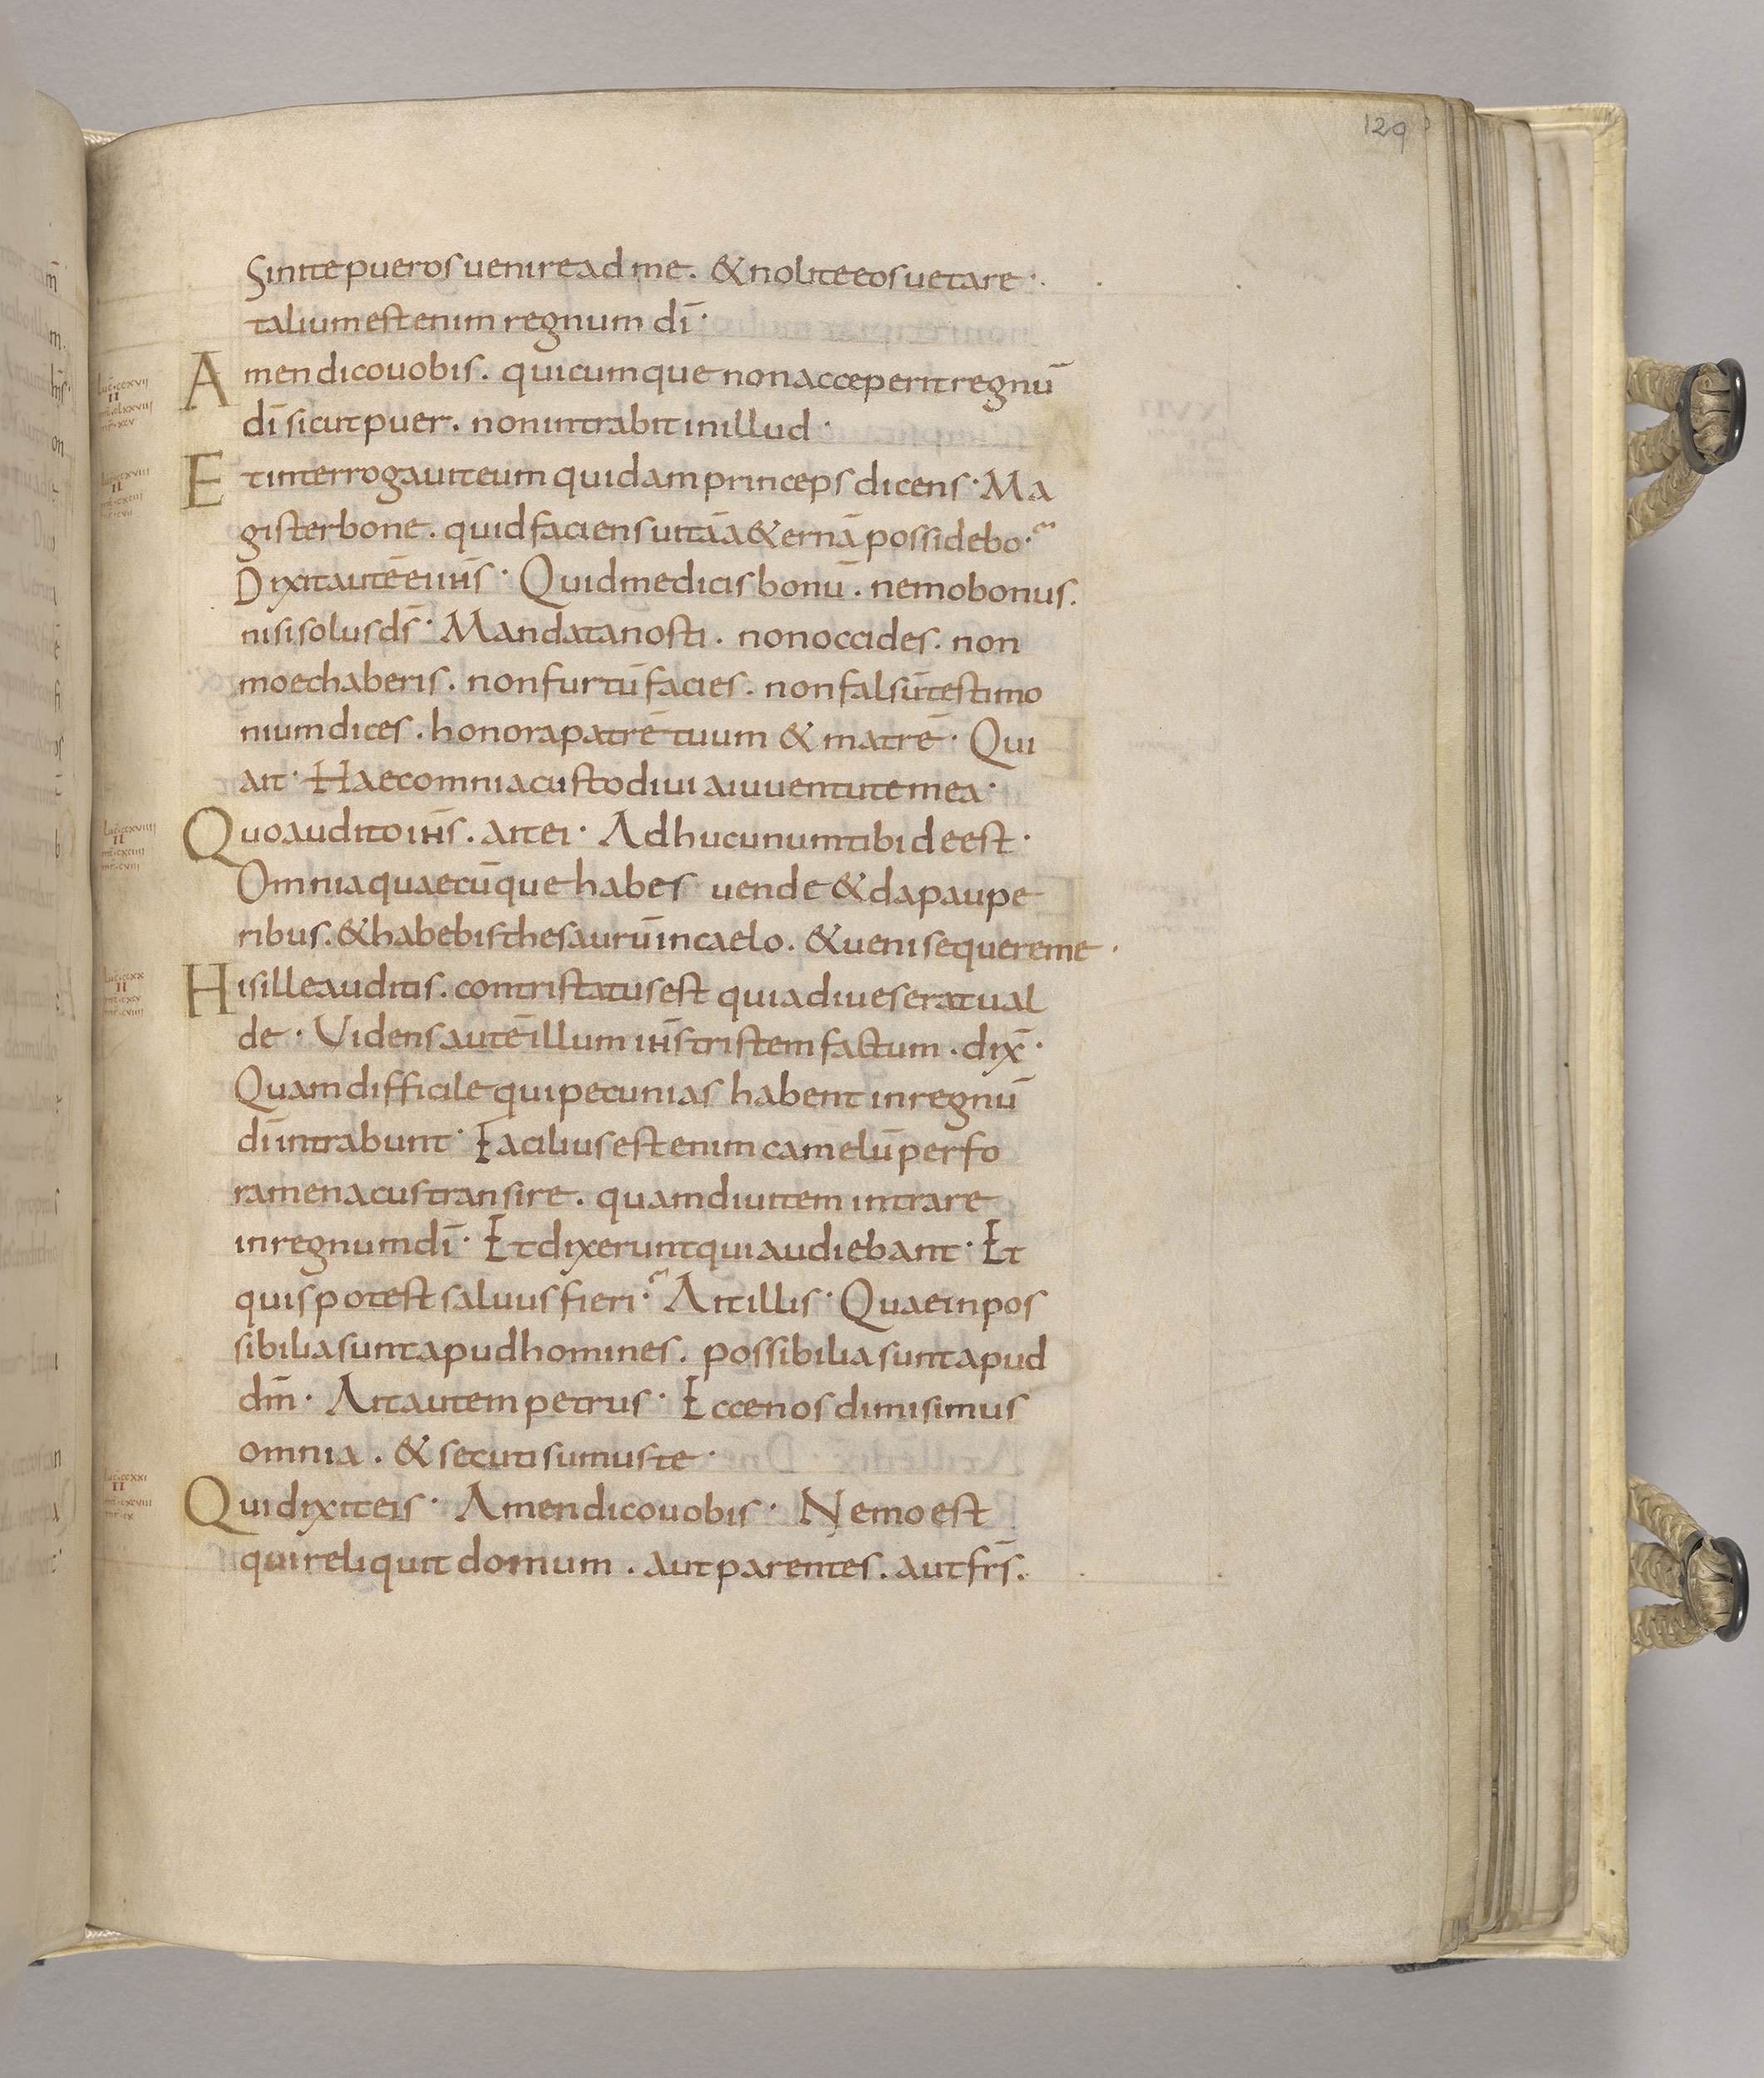 129
Sinite pueros uenire ad me. & nolite eos uetare·
talium est enim regnum dī·
Amen dico uobis. quicumque non acceperit regnū
dī sicut puer. non intrabit in illud·
Et interrogauit eum quidam princeps dicens· Ma
gister bone. quid faciens uitā a&ernā possidebo·
Dixit autē ei ihs̄· Quid me dicis bonū. nemo bonus.
nisi solus ds̄· Mandata nosti. non occides. non
moechaberis. non furtū facies. non falsū testimo
nium dices. honora patrē tuum & matrē· Qui
ait· Haec omnia custodiui a iuuentute mea·
Quo audito ihs̄. ait ei· Adhuc unum tibi deest·
Omnia quaecūque habes uende & da paupe
ribus. & habebis thesaurū in caelo. & ueni sequere me·
His ille auditis. contristatus est quia diues erat ual
de· Videns autē illum ihs̄ tristem factum. dix̄·
Quam difficile qui pecunias habent in regnū
dī intrabunt· Facilius est enim camelū per fo
ramen acus transire. quam diuitem intrare
in regnum dī· Et dixerunt qui audiebant· Et
quis potest saluus fieri· Ait illis· Quae inpos
sibilia sunt apud homines. possibilia sunt apud
dm̄· Ait autem petrus· Ecce nos dimisimus
omnia. & secuti sumus te·
Qui dixit eis· Amen dico uobis· Nemo est
qui reliquit domum. aut parentes. aut frs̄.